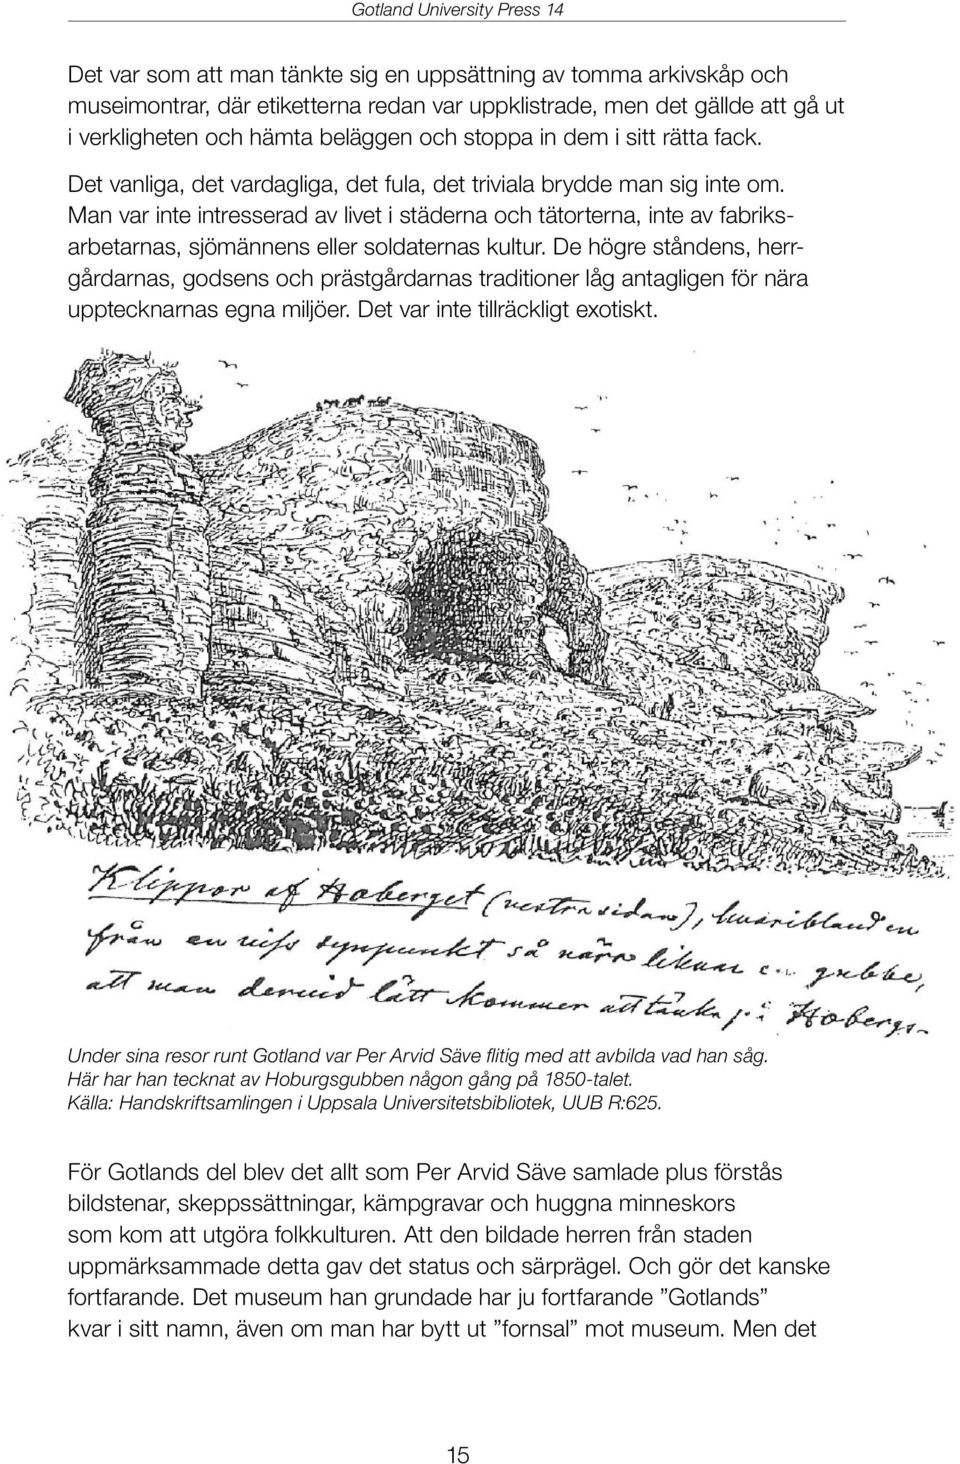 Gotland University Press 14
Det var som att man tänkte sig en uppsättning av tomma arkivskåp och
museimontrar, där etiketterna redan var uppklistrade, men det gällde att gå ut
i verkligheten och hämta beläggen och stoppa in dem i sitt rätta fack.
Det vanliga, det vardagliga, det fula, det triviala brydde man sig inte om.
Man var inte intresserad av livet i städerna och tätorterna, inte av fabriks-
arbetarnas, sjömännens eller soldaternas kultur. De högre ståndens, herr-
gårdarnas, godsens och prästgårdarnas traditioner låg antagligen för nära
upptecknarnas egna miljöer. Det var inte tillräckligt exotiskt.
Klippor af Hoberget (vestra sidan), hvaribland en
från en viss synpunkt så nära liknar en gubbe,
att man dervid lätt kommer att tänka på Hobergs-
Under sina resor runt Gotland var Per Arvid Säve flitig med att avbilda vad han såg.
Här har han tecknat av Hoburgsgubben någon gång på 1850-talet.
Källa: Handskriftsamlingen i Uppsala Universitetsbibliotek, UUB R:625.
För Gotlands del blev det allt som Per Arvid Säve samlade plus förstås
bildstenar, skeppssättningar, kämpgravar och huggna minneskors
som kom att utgöra folkkulturen. Att den bildade herren från staden
uppmärksammade detta gav det status och särprägel. Och gör det kanske
fortfarande. Det museum han grundade har ju fortfarande ”Gotlands”
kvar i sitt namn, även om man har bytt ut ”fornsal” mot museum. Men det
15